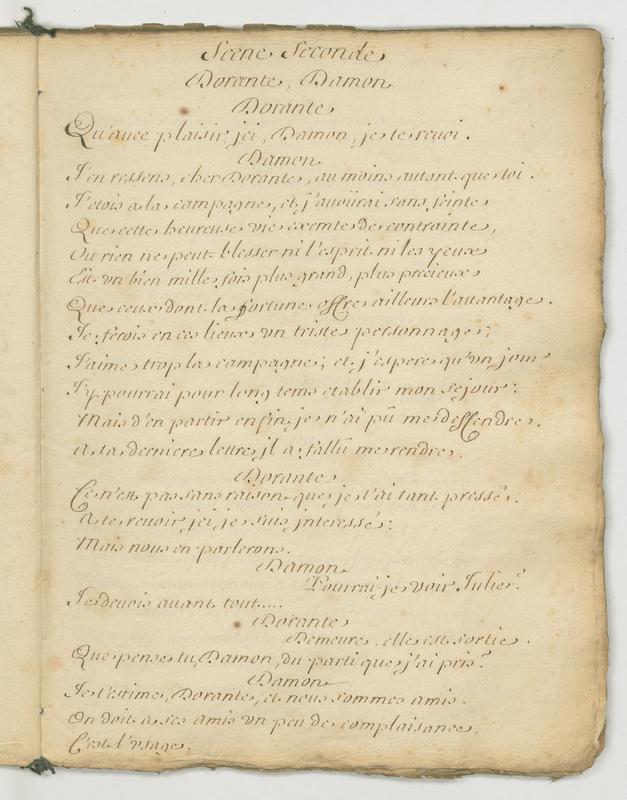 Scene Seconde
Dorante, Damon
Dorante
Qu'avec plaisir, jci, Damon, je te revoi.
Damon
J'en ressens, cher Dorante, au moins autant que toi.
J'etois a la campagne, et j'avoürai sans feinte
Que cette heureuse vie exemte de contrainte,
Ou rien ne peut blesser ni l'esprit ni les yeux
Est vn bien mille fois plus grand, plus précieux
Que ceux dont la fortune offre ailleurs l'avantage.
Je ferois en ces lieux vn triste personnage;
J'aime trop la campagne; et j'espere qu'vn jour
J'y pourrai pour long tems etablir mon sejour:
Mais d'en partir enfin je n'ai pû me deffendre.
a ta derniere lettre jl a fallû me rendre.
Dorante
Ce n'est pas sans raison que je t'ai tant pressé.
A te revoir jci je suis jnteressé:
Mais nous en parlerons.
Damon
Pourrai je voir Julie?
Je devois avant tout....
Dorante
Demeure. elle est sortie.
Que pense tu, Damon, du parti que j'ai pris?
Damon
Je t'estime, Dorante, et nous sommes amis.
On doit a ses amis vn peu de complaisance,
C'est l'vsage.